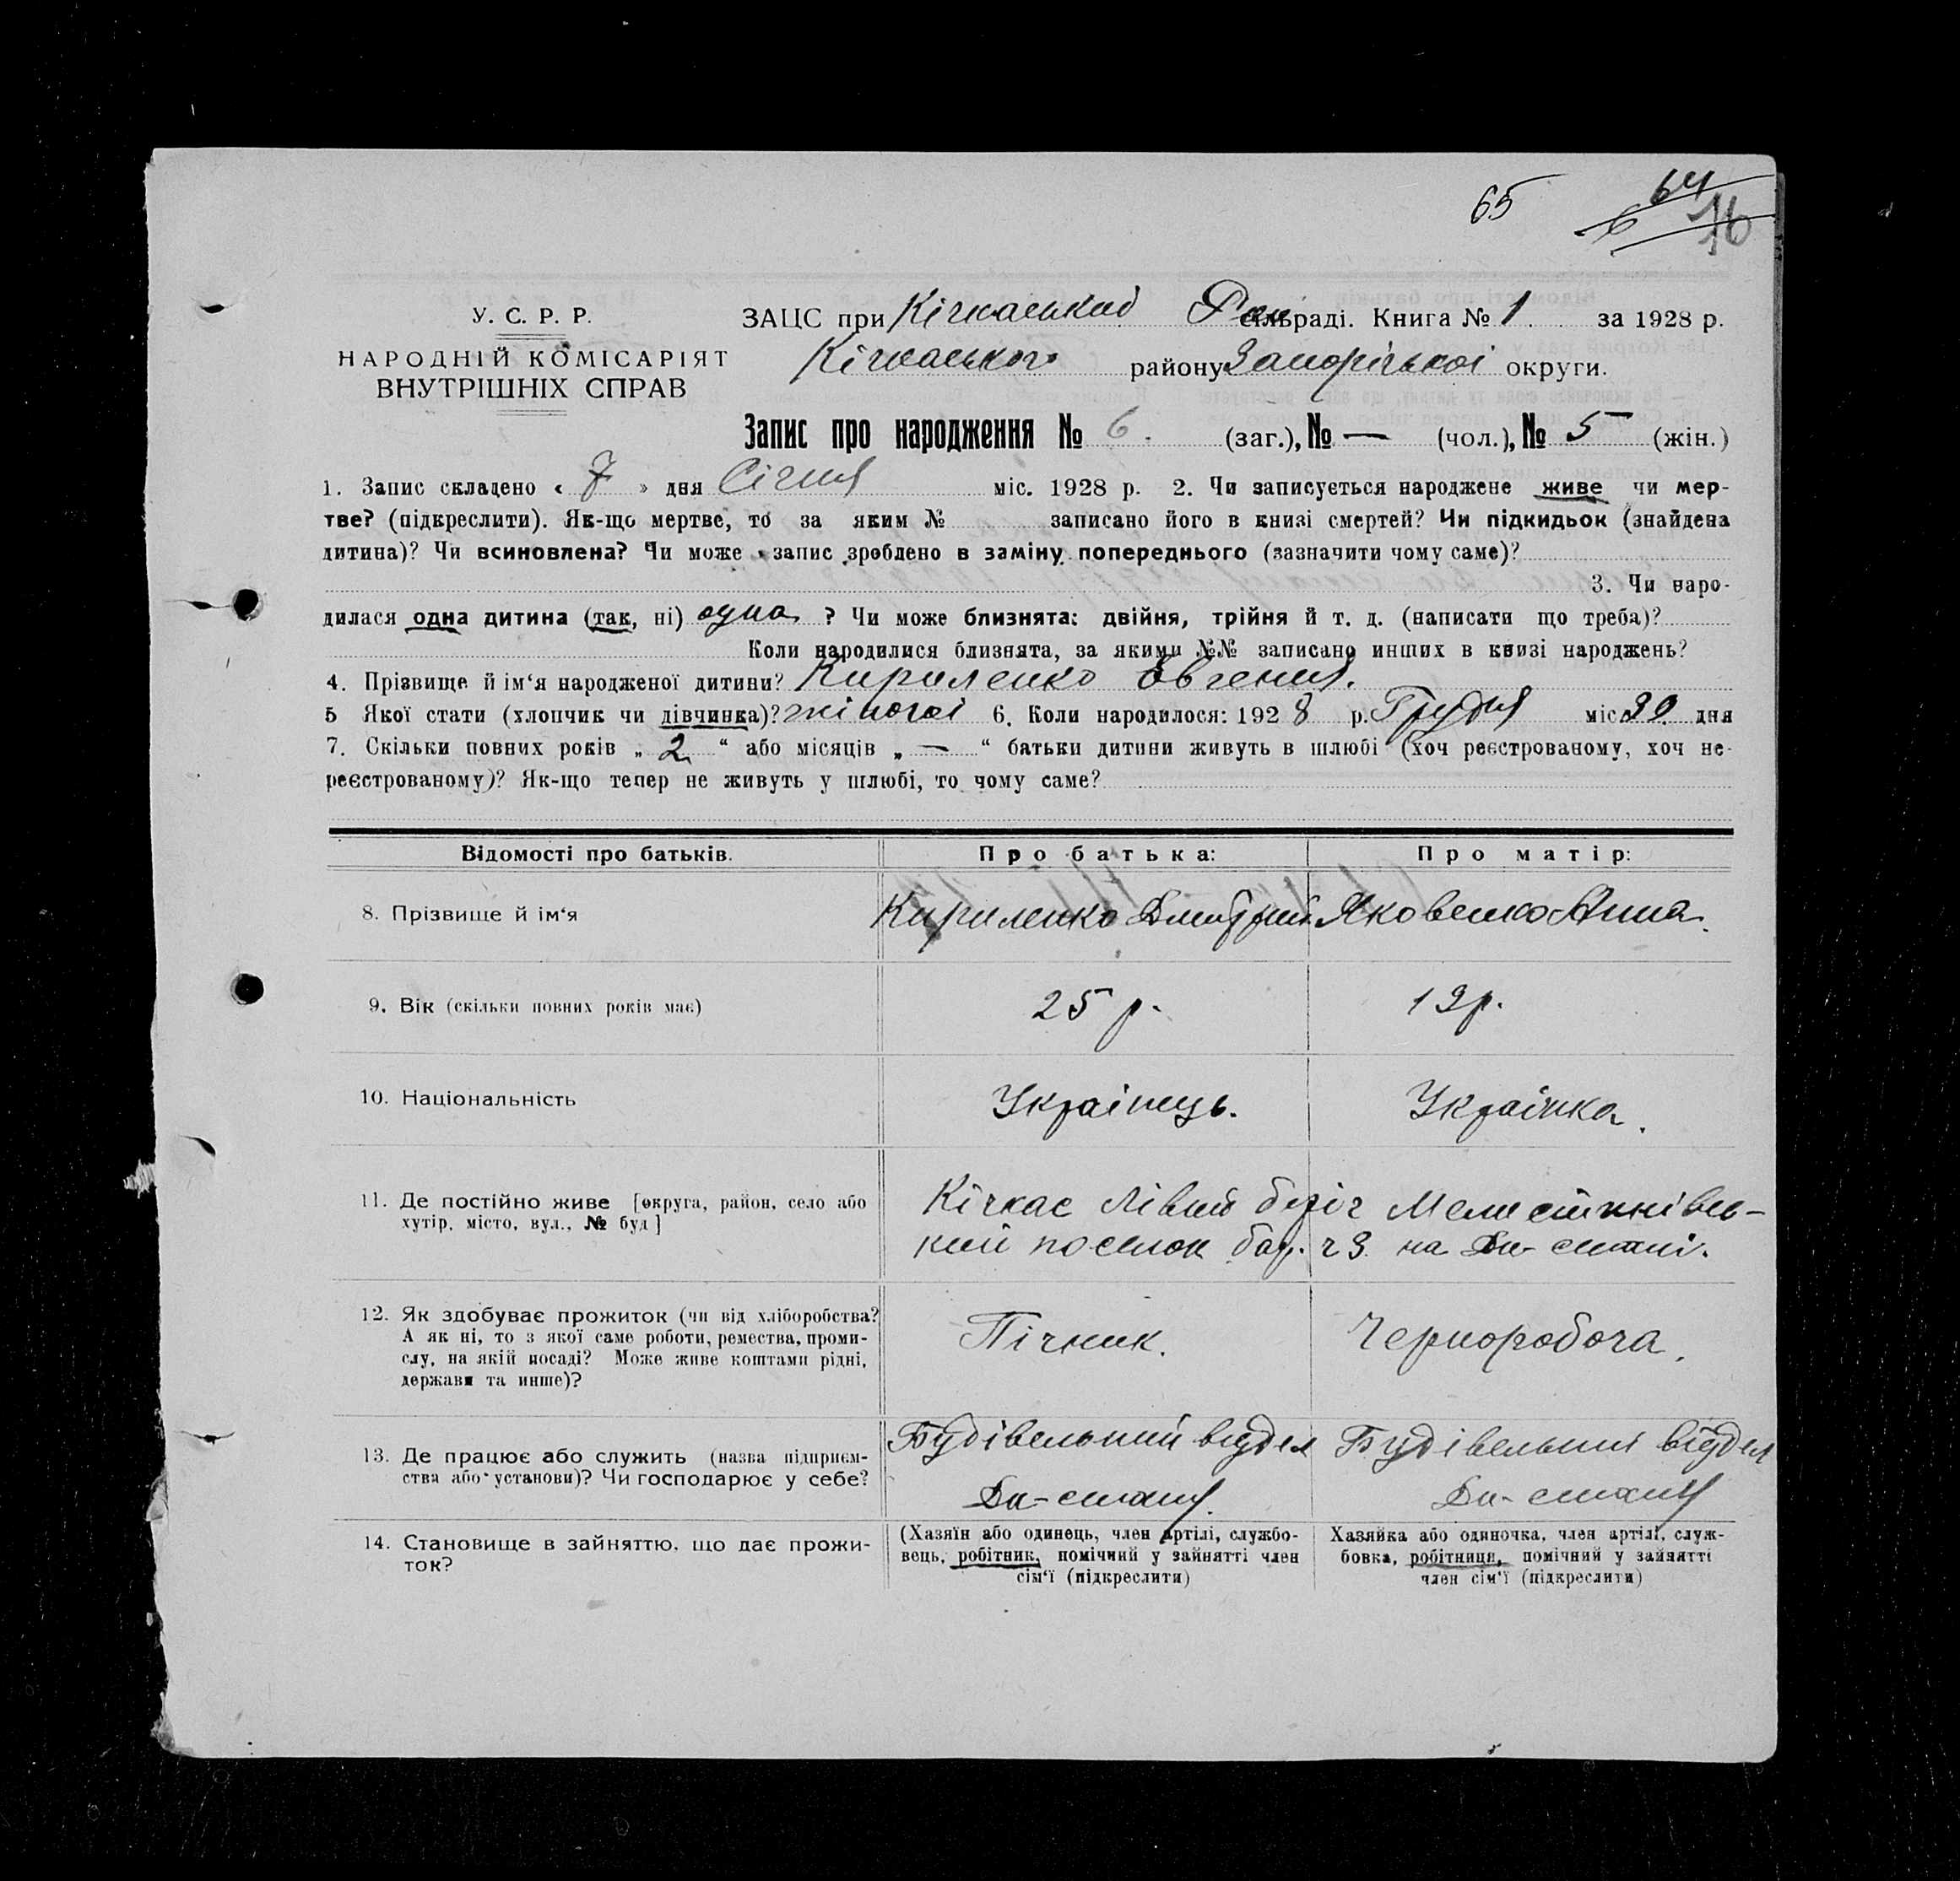 65 64
6 16
У. С. Р. Р.
НАРОДНІЙ КОМІСАРІЯТ
ВНУТРІШНІХ СПРАВ
ЗАЦС при Кічкаський Рай сільраді. Книга № 1 за 1928 р.
Кічкаського району Запорізької округи.
Запис про народження № 6. (заг.), № — (чол.), № 5 (жін.)
1. Запис складено « 7 » дня Січня міс. 1928 р. 2. Чи записується народжене живе чи мер-
тве? (підкреслити). Як-що мертве, то за яким № записано його в книзі смертей? Чи підкидьок (знайдена
дитина)? Чи всиновлена? Чи може запис зроблено в заміну попереднього (зазначити чому саме)?
3. Чи наро-
дилася одна дитина (так, ні) одна ? Чи може близнята: двійня, трійня й т. д. (написати що треба)?
Коли народилися близнята, за якими №№ записано инших в книзі народжень?
4. Прізвище й ім'я народженої дитини? Кириленко Евгения.
5 Якої стати (хлопчик чи дівчинка)? жіночої 6. Коли народилося: 192 8 р. Грудня міс. дня
7. Скільки повних років „ 2 “ або місяців „ — “ батьки дитини живуть в шлюбі (хоч реєстрованому, хоч не-
реєстрованому)? Як-що тепер не живуть у шлюбі, то чому саме?
Відомості про батьків. Про батька: Про матір:
8. Прізвище й ім'я Кириленко Дмитрий Яковенко Анна.
9. Вік (скільки повних років має) 25 р. 19 р.
10. Національність Українець. Українка.
11. Де постійно живе [округа, район, село або Кічкас Лівий беріг
хутір, місто, вул., № буд] кий поселок бар. 23. на Дн-стані.
12. Як здобуває прожиток (чи від хліборобства? Пічник. Чернороботча.
А як ні, то з якої саме роботи, ремества, проми-
слу, на якій посаді? Може живе коштами рідні,
держави та инше)?
13. Де працює або служить (назва підприєм- Будівельний відділ Будівельний відділ
ства або установи)? Чи господарює у себе? Дн-стану. Дн-стану
14. Становище в зайняттю, що дає прожи-
ток?
(Хазяїн або одинець, член артілі, службо-
вець, робітник, помічний у зайнятті член
сім'ї (підкреслити)
Хазяйка або одиночка, член артілі, служ-
бовка, робітниця, помічний у зайнятті
член сім'ї (підкреслити)